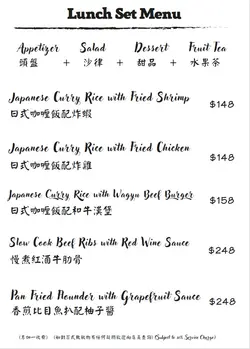 Lunch Set Menu
Appetizer Salad Dessert Fruit Tea
頭盤 + 沙律 + 甜品 + 水果茶
Japanese Curry Rice with Fried Shrimp $148
日式咖喱飯配炸蝦
Japanese Curry Rice with Fried Chicken $148
日式咖喱飯配炸雞
Japanese Curry Rice with Wagyu Beef Burger $158
日式咖喱飯配和牛漢堡
Slow Cook Beef Ribs with Red Wine Sauce $248
慢煮紅酒牛肋骨
Pan Fried Flounder with Grapefruit Sauce $248
香煎比目魚扒配柚子醬
(另加一收費) (Subject to 10% Service Charge)